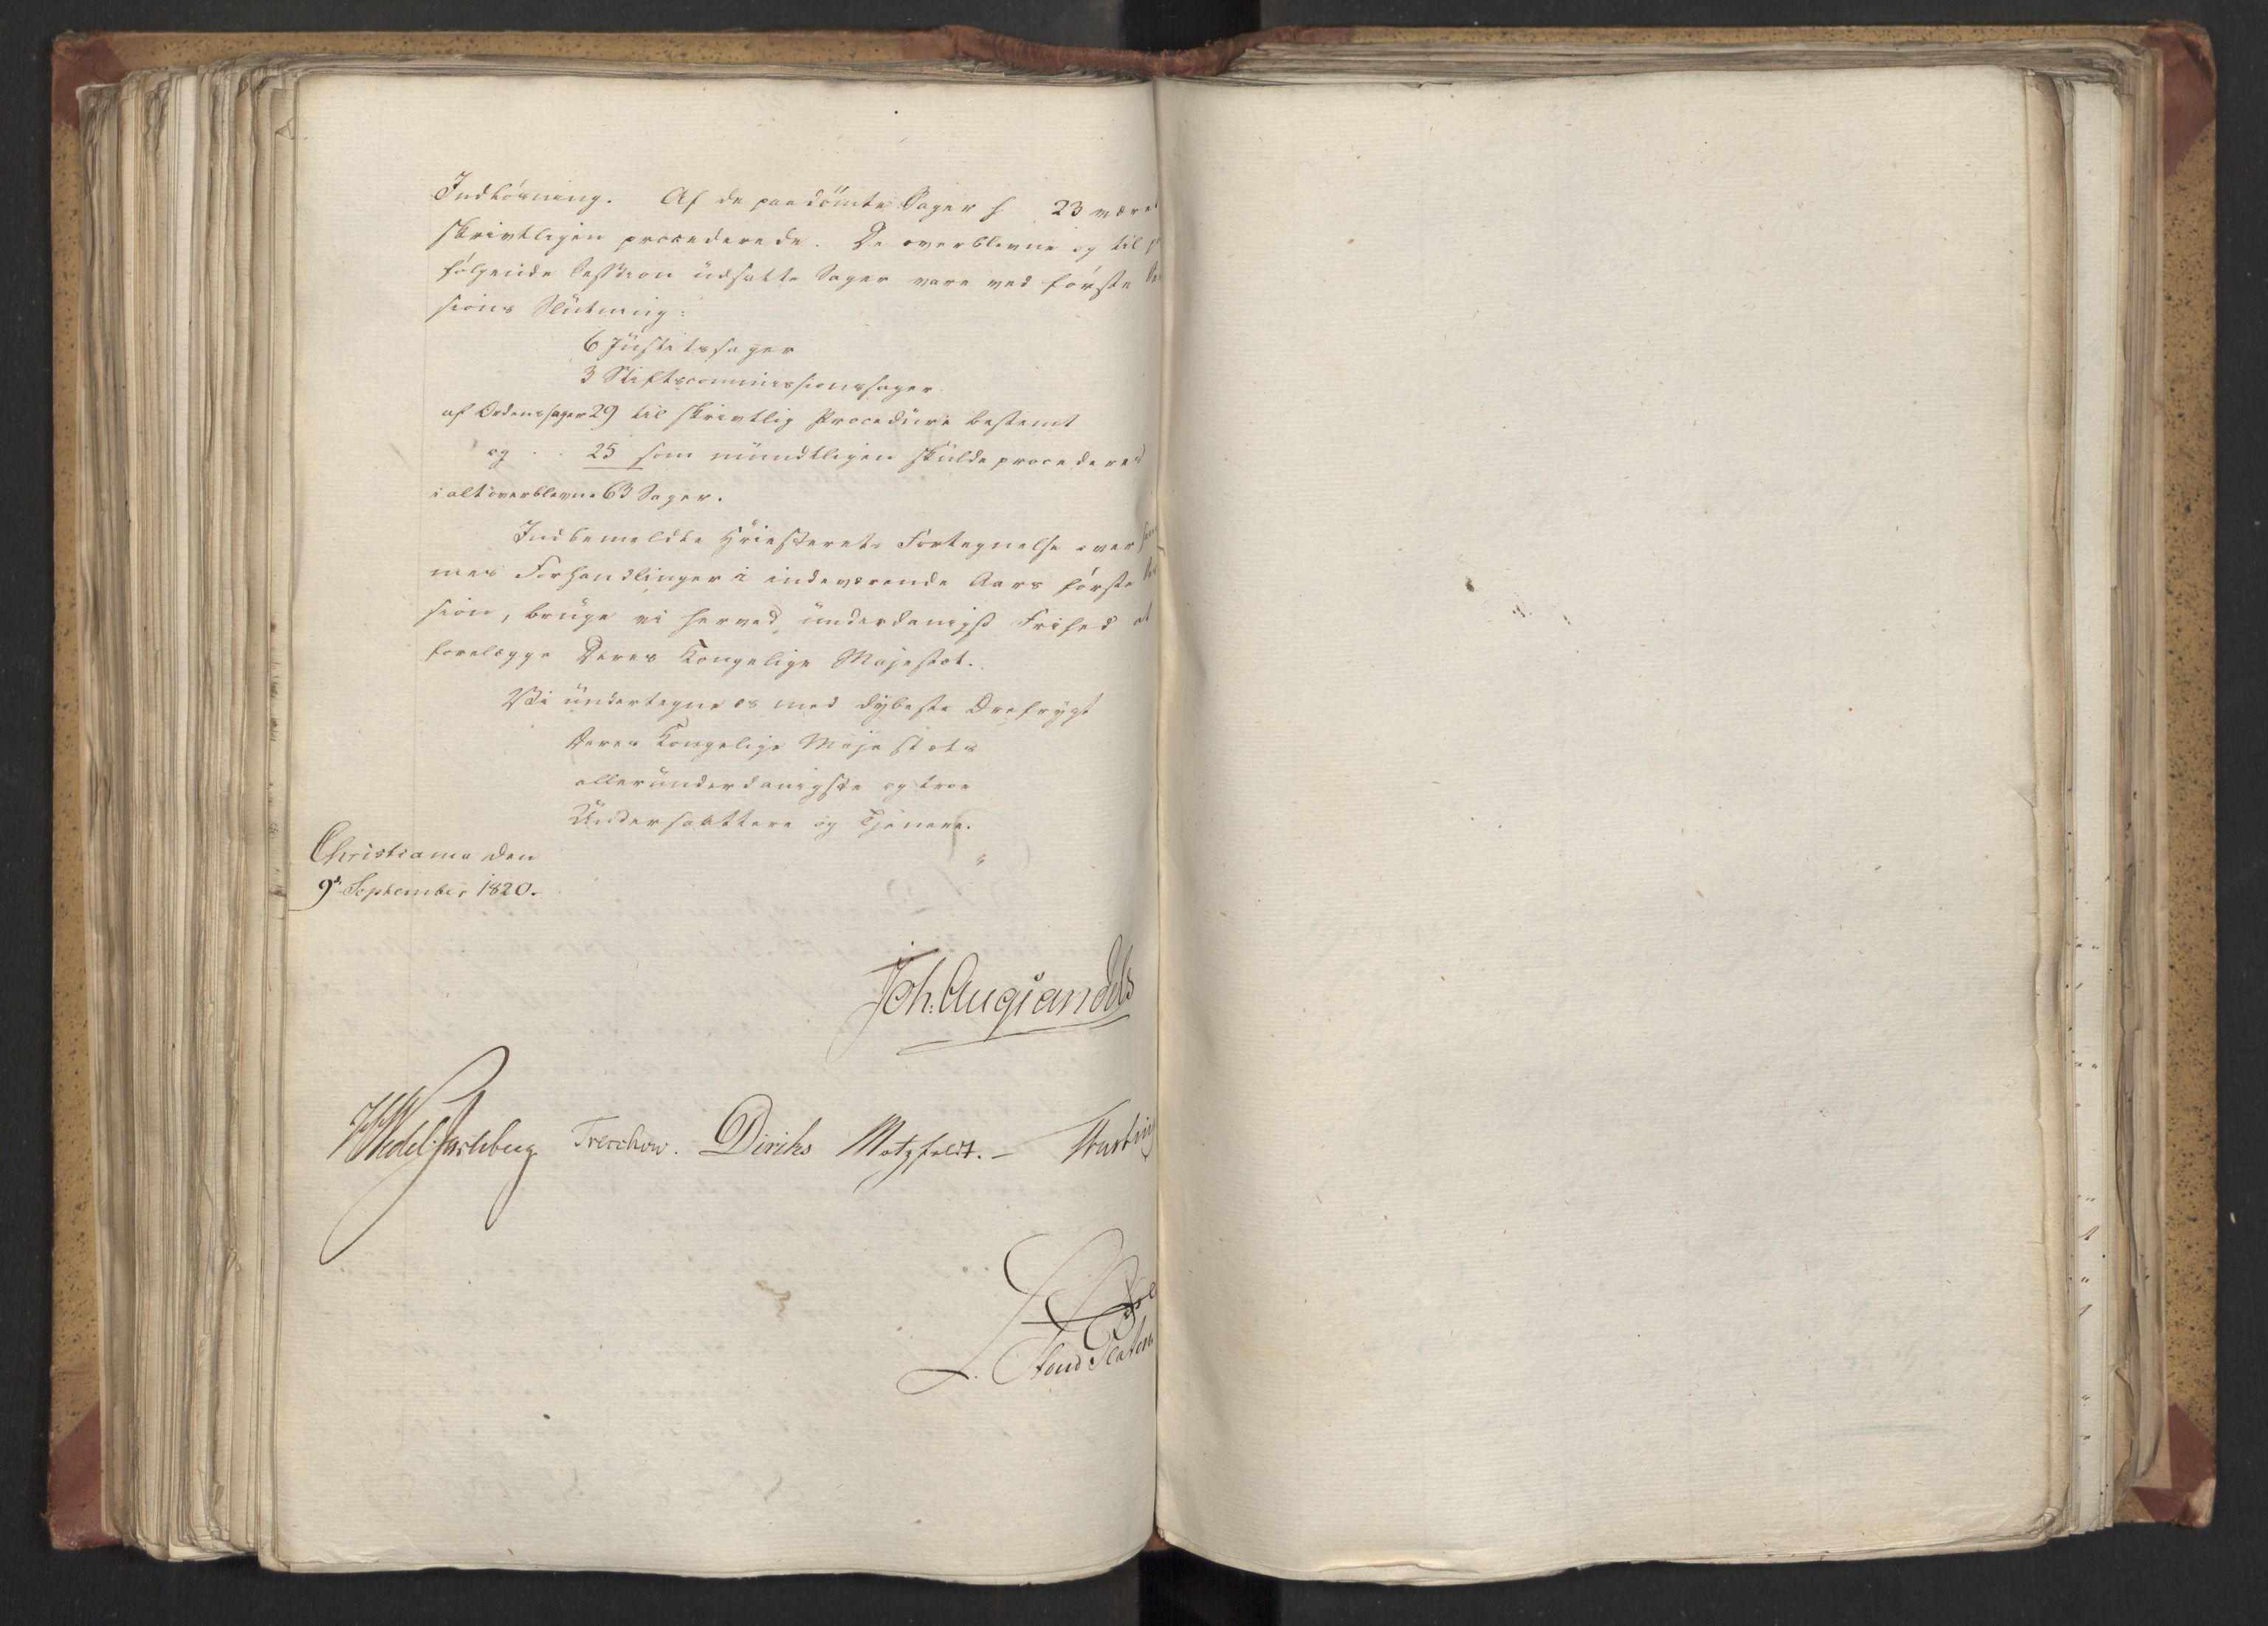 Indkörning. Af de paadömte Sager h 23 været
skrivtligen procederede. De overblevne og til
følgende Session udsatte Sager vare ved første Ses
sions Slutning:
6 Justitssager
3 Stiftscommissionssager
af Ordenssager 29 til skrivtlig Procedure bestemt
og . . 25 som mundtligen skulde procederes
i alt overblevne 63 Sager.
Indbemeldte Høiesterets Fortegnelse over sam
mes Forhandlinger i indeværende Aars første Ses
sion, bruge vi herved underdanigst Frihed at
forelægge Deres Kongelige Majestæt.
Vi undertegne os med dybeste Ærefrygt
Deres Kongelige Majestæts
allerunderdanigste og troe
Undersaattere og Tjenere.
Christiania den
9de September 1820.
Joh. Aug: Sandels
HWedel Jarlsberg Treschow. Diriks Motzfeldt. -